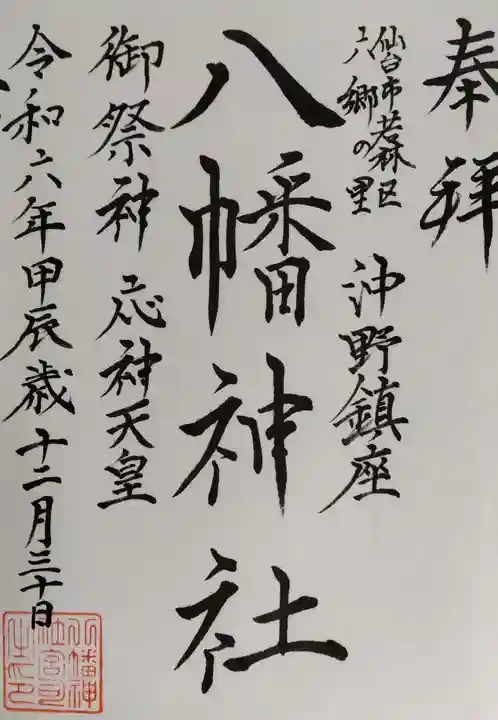 奉拝
仙台市若林区
六郷の里
沖野鎮座
八幡神社
御祭神 応神天皇
令和六年甲辰歳十二月三十日
八幡神
社宮司
之印